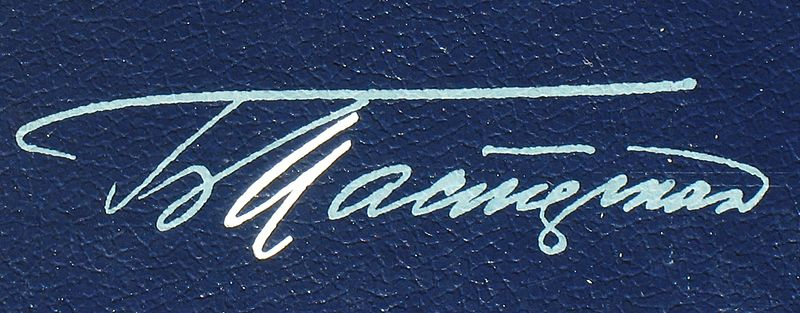 Б Пастернак